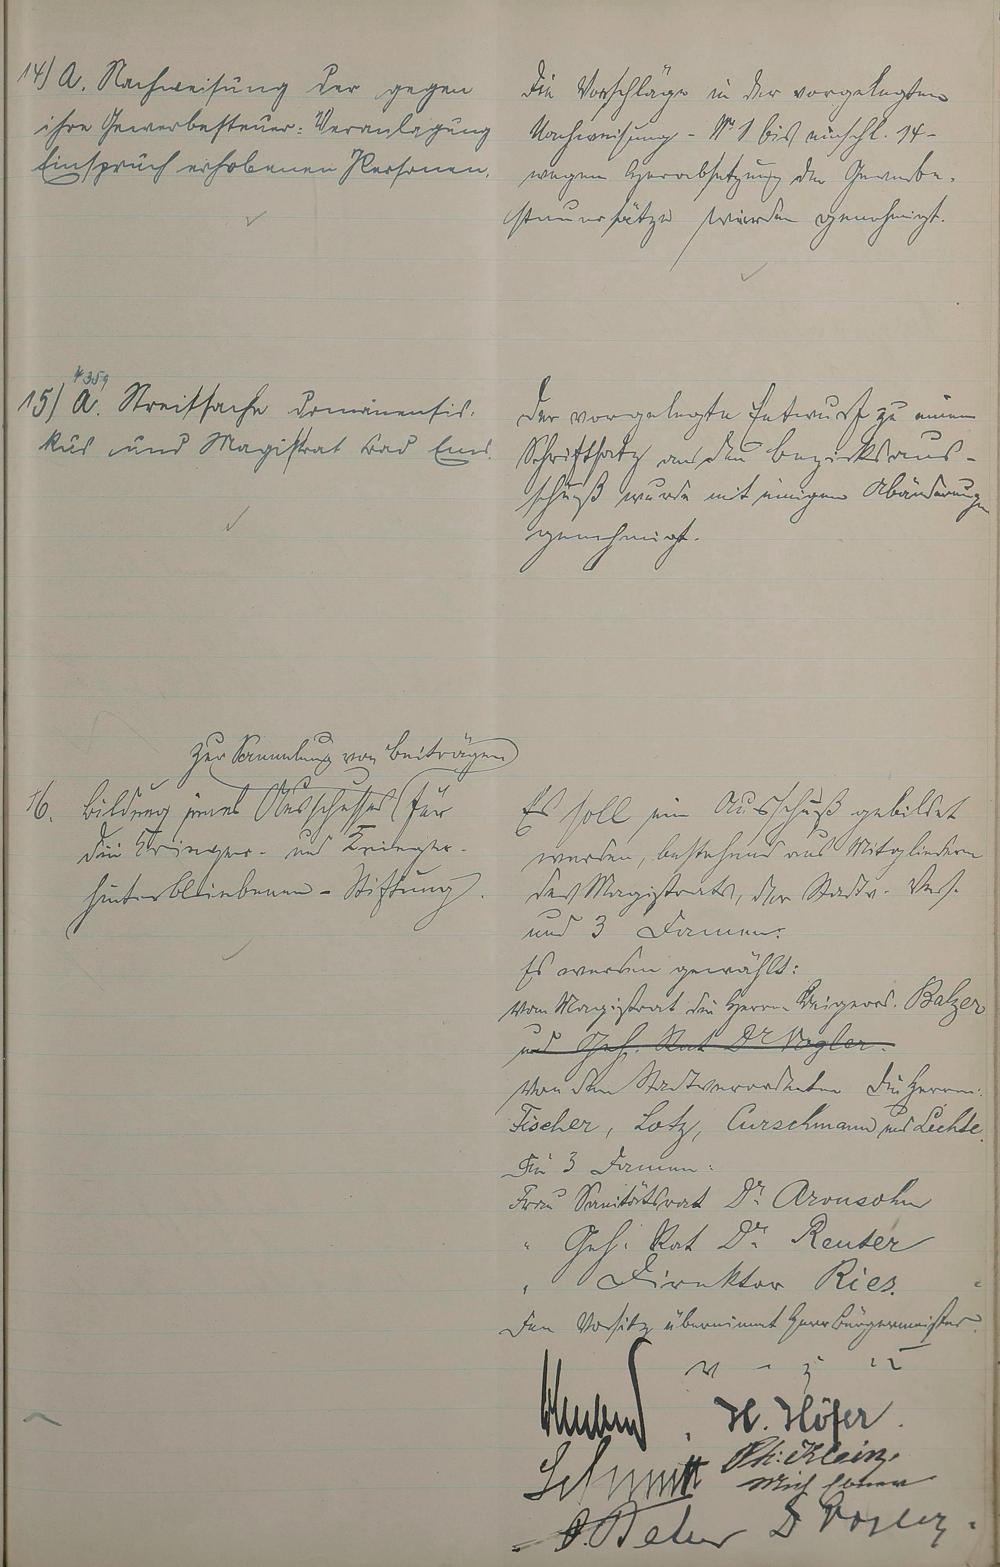 14) A. Nachweisung der gegen
ihre Gewerbesteuer-Veranlagung
Einspruch erhobenen Personen.
Die Vorschläge in der vorgelegten
Nachweisung - No 1 bis einschl. 14 -
wegen Herabsetzung der Gewerbe-
steuersätze wurden genehmigt.
15) A. Streitsache Domänenfis-
kus und Magistrat Bad Ems.
Der vorgelegte Entwurf zu einem
Schriftsatz an den Bezirksaus-
schuß wurde mit einigen Abänderungen
genehmigt.
zur Sammlung von Beiträgen
16. Bildung eines Ausschusses für
die Krieger- und Krieger-
hinterbliebenen-Stiftung.
Es soll ein Ausschuß gebildet
werden, bestehend aus Mitgliedern
des Magistrats, der Stadtv. Vers.
und 3 Damen.
Es werden gewählt:
vom Magistrat die Herrn Beigeord. Balzer
und Geh. Rat Dr Vogler.
Von den Stadtverordneten die Herren:
Fischer, Lotz, Curschmann und Lechte.
Die 3 Damen:
Frau Sanitätsrat Dr. Aronsohn
" Geh. Rat Dr. Reuter
" Direktor Ries.
Den Vorsitz übernimmt Herr Bürgermeister.
v. g. u.
H. Höfer.
Schmitt Ph. Klein.
D Vogler.